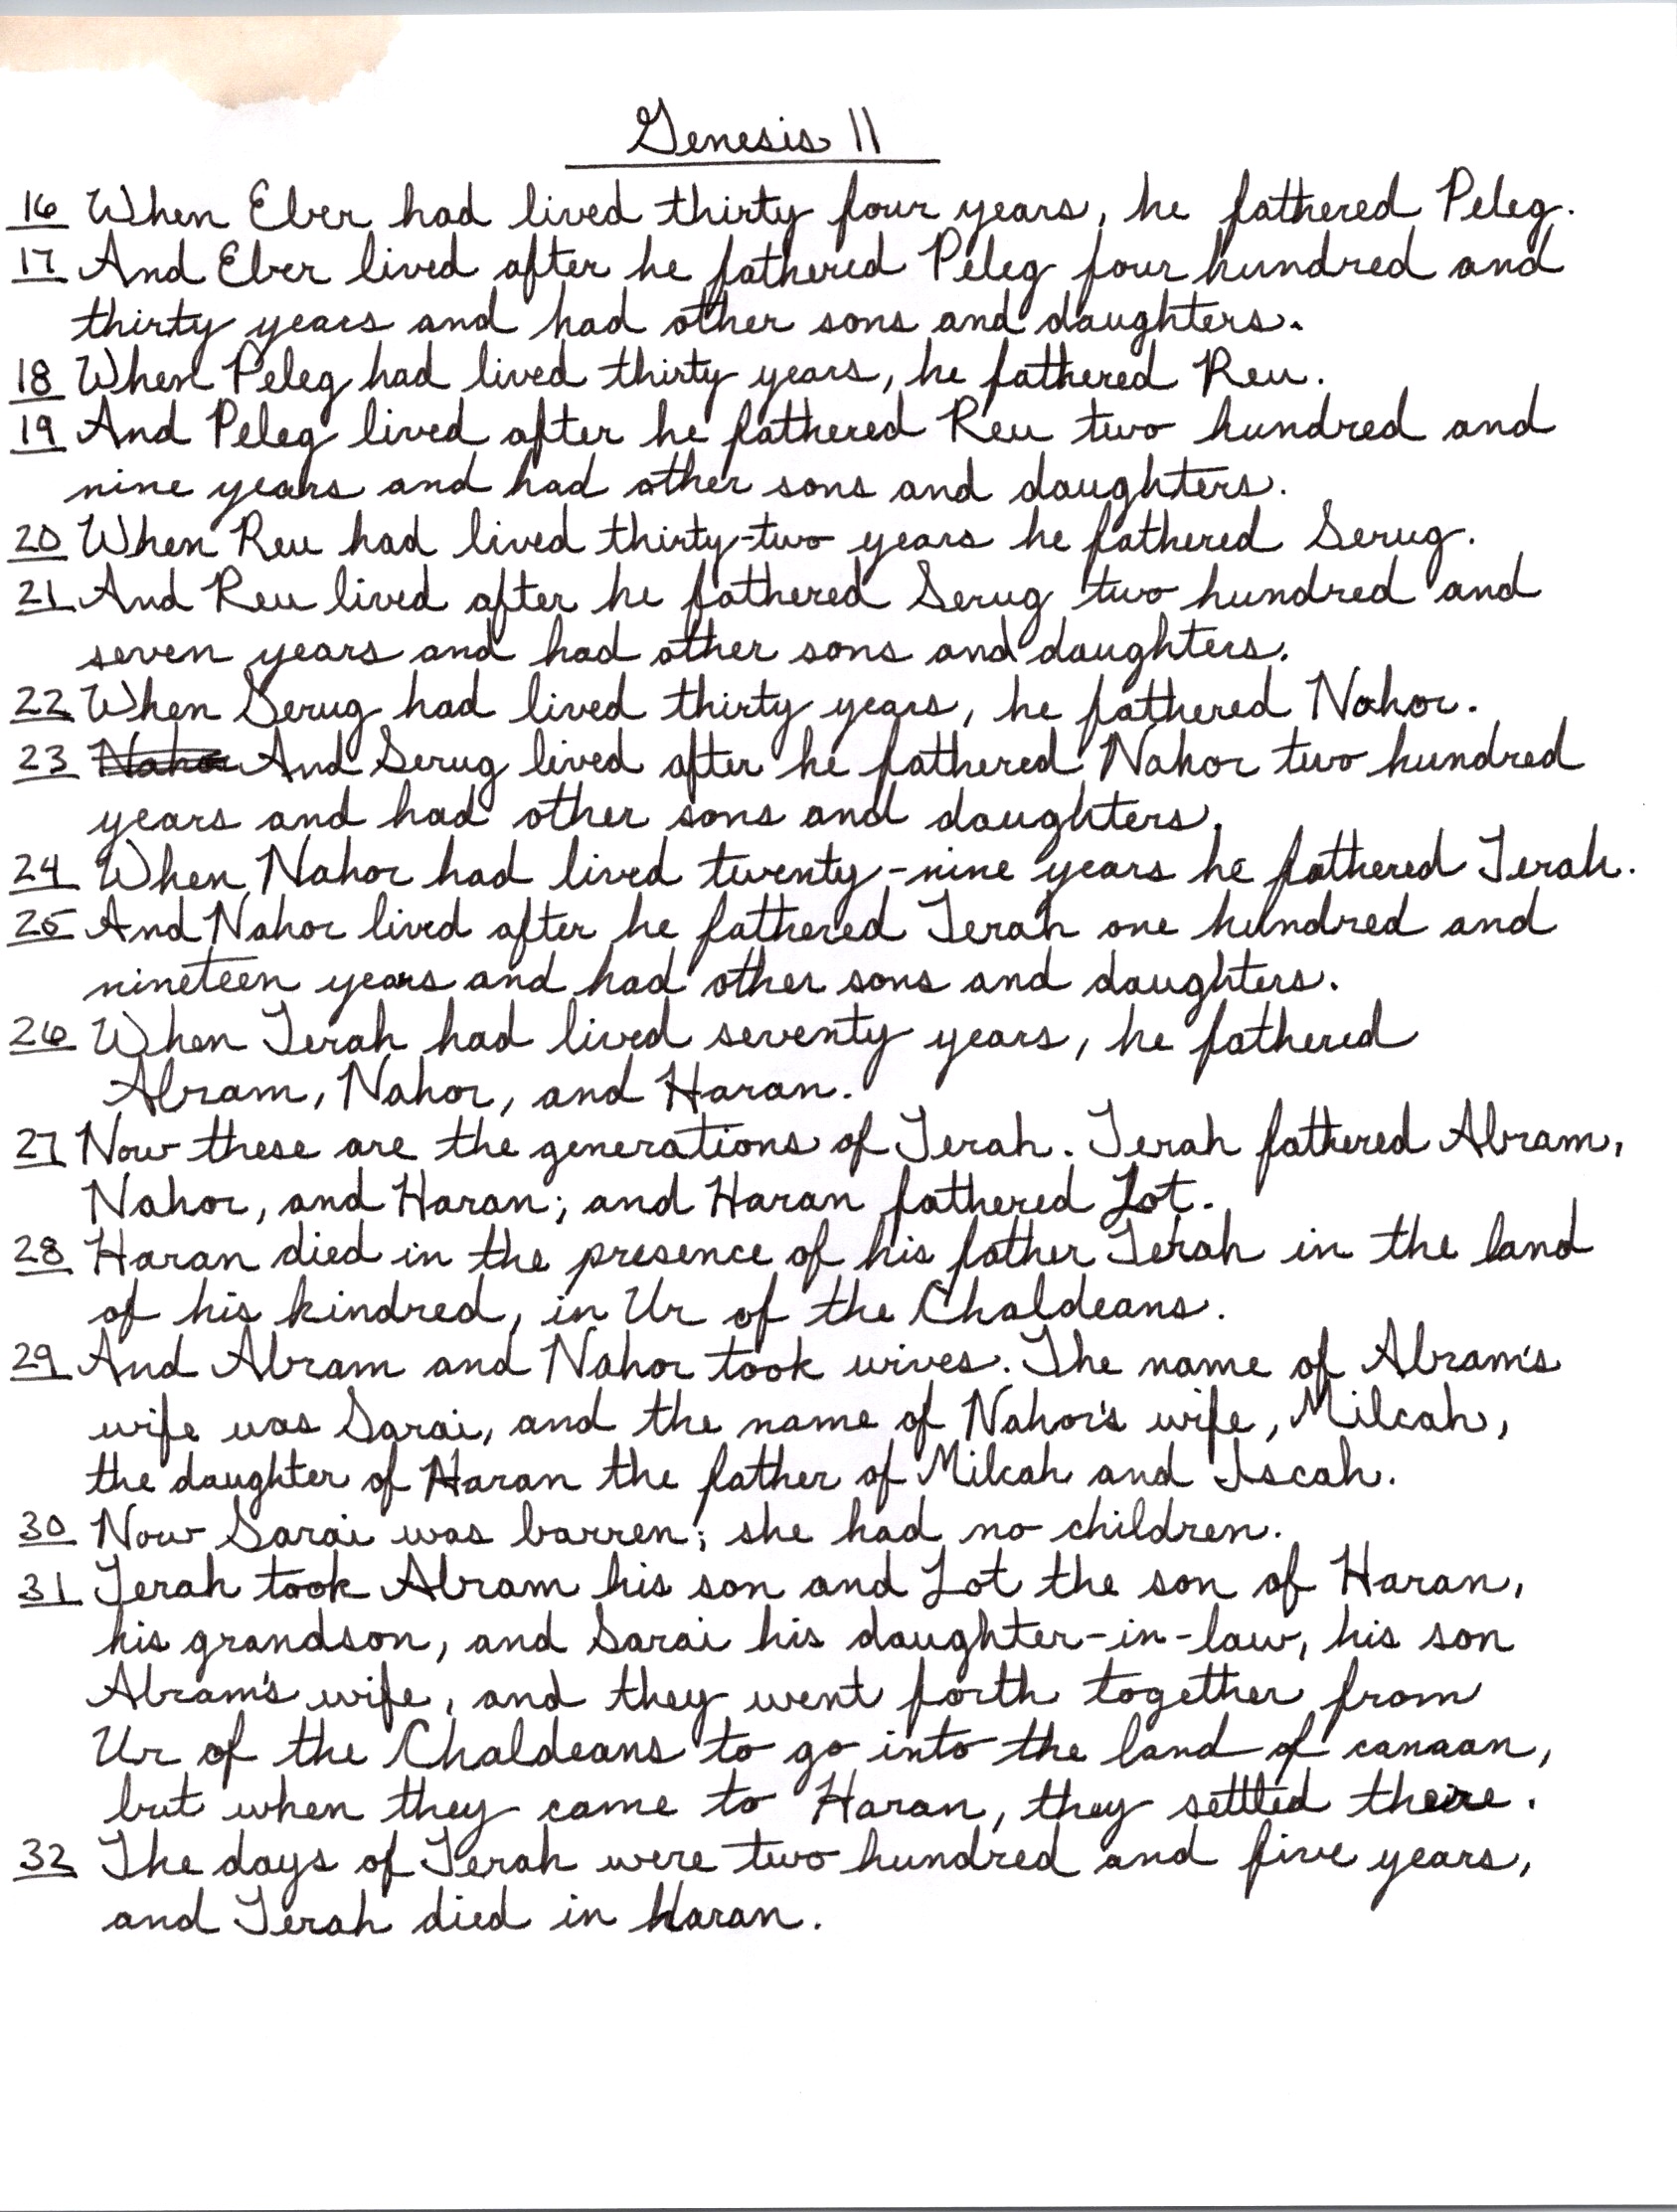 Genesis 11
16 When Eber had lived thirty four years, he fathered Peleg.
17 And Eber lived after he fathered Peleg four hundred and
thirty years and had other sons and daughters.
18 When Peleg had lived thirty years, he fathered Reu.
19 And Peleg lived after he fathered Reu two hundred and
nine years and had other sons and daughters.
20 When Reu had lived thirty-two years he fathered Serug.
21 And Reu lived after he fathered Serug two hundred and
seven years and had other sons and daughters.
22 When Serug had lived thirty years, he fathered Nahor.
23 Nahor And Serug lived after he fathered Nahor two hundred
years and had other sons and daughters.
24 When Nahor had lived twenty-nine years he fathered Terah.
25 And Nahor lived after he fathered Terah one hundred and
nineteen years and had other sons and daughters.
26 When Terah had lived seventy years, he fathered
Abram, Nahor, and Haran.
27 Now these are the generations of Terah. Terah fathered Abram,
Nahor, and Haran; and Haran fathered Lot.
28 Haran died in the presence of his father Terah in the land
of his kindred, in Ur of the Chaldeans.
29 And Abram and Nahor took wives. The name of Abram's
wife was Sarai, and the name of Nahor's wife, Milcah,
the daughter of Haran the father of Milcah and Iscah.
30 Now Sarai was barren; she had no children.
31 Terah took Abram his son and Lot the son of Haran,
his grandson, and Sarai his daughter-in-law, his son
Abram's wife, and they went forth together from
Ur of the Chaldeans to go into the land of canaan,
but when they came to Haran, they settled there.
32 The days of Terah were two hundred and five years,
and Terah died in Haran.